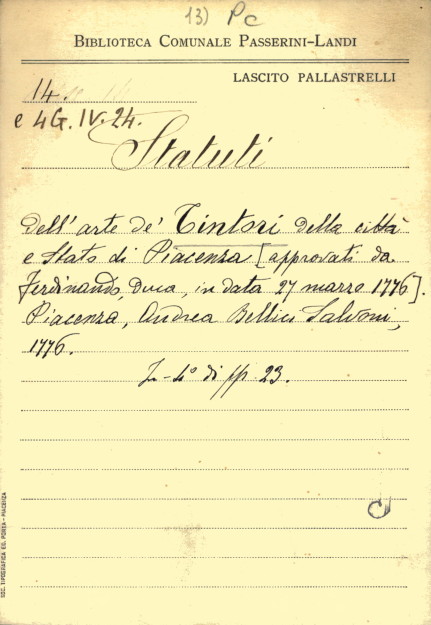 13) Pc
BIBLIOTECA COMUNALE PASSERINI-LANDI
LASCITO PALLASTRELLI
14.
e 4G. IV. 24.
Statuti
Dell'arte de' Tintori della città
e Stato di Piacenza [approvati da
Ferdinando, Duca, in data 27 marzo 1776].
Piacenza, Andrea Bellici Salvoni,
1776.
In-4° di pp. 23.
SOC. TIPOGRAFICA ED. PORTA - PIACENZA